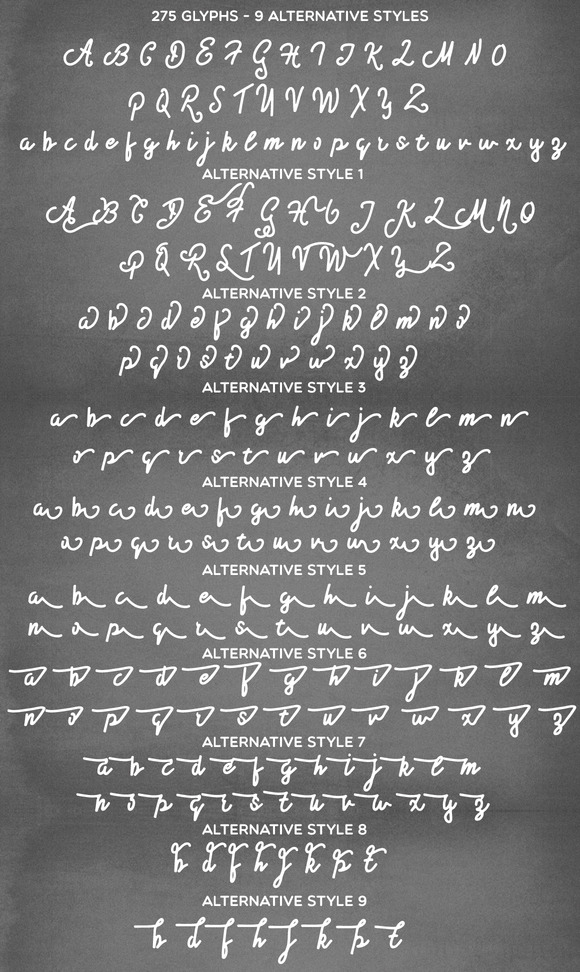 275 GLYPHS - 9 ALTERNATIVE STYLES
A B C D E F G H I J K L M N O
P Q R S T U V W X Y Z
a b c d e f g h i j k l m n o p q r s t u v w x y z
ALTERNATIVE STYLE 1
A B C D E F G H I J K L M N O
P Q R S T U V W X Y Z
ALTERNATIVE STYLE 2
a b c d e f g h i j k l m n o
p q r s t u v w x y z
ALTERNATIVE STYLE 3
a b c d e f g h i j k l m n
o p q r s t u v w x y z
ALTERNATIVE STYLE 4
a b c d e f g h i j k l m n
o p q r s t u v w x y z
ALTERNATIVE STYLE 5
a b c d e f g h i j k l m
n o p q r s t u v w x y z
ALTERNATIVE STYLE 6
a b c d e f g h i j k l m
n o p q r s t u v w x y z
ALTERNATIVE STYLE 7
a b c d e f g h i j k l m
n o p q r s t u v w x y z
ALTERNATIVE STYLE 8
b d f h j k p t
ALTERNATIVE STYLE 9
b d f h j k p t